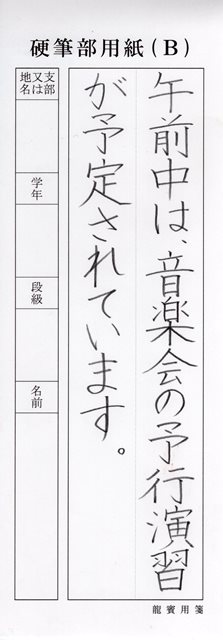 硬筆部用紙(B)
午前中は、音楽会の予行演習
が予定されています。
支部
又は
地名
学年
段級
名前
龍賓用箋